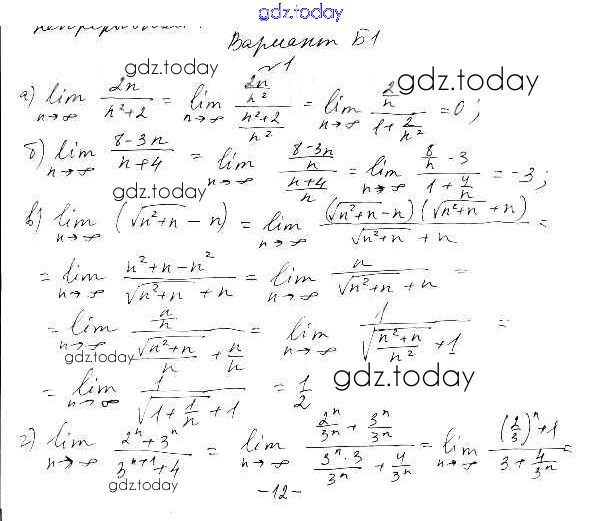 gdz.today
Вариант Б1
№1
gdz.today
gdz.today
а) lim n→∞ 2n/(n²+2) = lim n→∞ (2n/n²)/((n²+2)/n²) = lim n→∞ (2/n)/(1+2/n²) = 0;
б) lim n→∞ (8-3n)/(n+4) = lim n→∞ ((8-3n)/n)/((n+4)/n) = lim n→∞ (8/n - 3)/(1 + 4/n) = -3;
gdz.today
в) lim n→∞ (√(n²+n) - n) = lim n→∞ (√(n²+n) - n)(√(n²+n) + n)/(√(n²+n) + n) =
= lim n→∞ (n²+n-n²)/(√(n²+n) + n) = lim n→∞ n/(√(n²+n) + n) =
= lim n→∞ (n/n)/(√(n²+n)/n + n/n) = lim n→∞ 1/(√((n²+n)/n²) + 1) =
gdz.today
gdz.today
= lim n→∞ 1/(√(1+1/n) + 1) = 1/2
г) lim n→∞ (2ⁿ+3ⁿ)/(3ⁿ⁺¹+4) = lim n→∞ (2ⁿ/3ⁿ + 3ⁿ/3ⁿ)/(3ⁿ·3/3ⁿ + 4/3ⁿ) = lim n→∞ ((2/3)ⁿ+1)/(3+4/3ⁿ) =
gdz.today
-12-